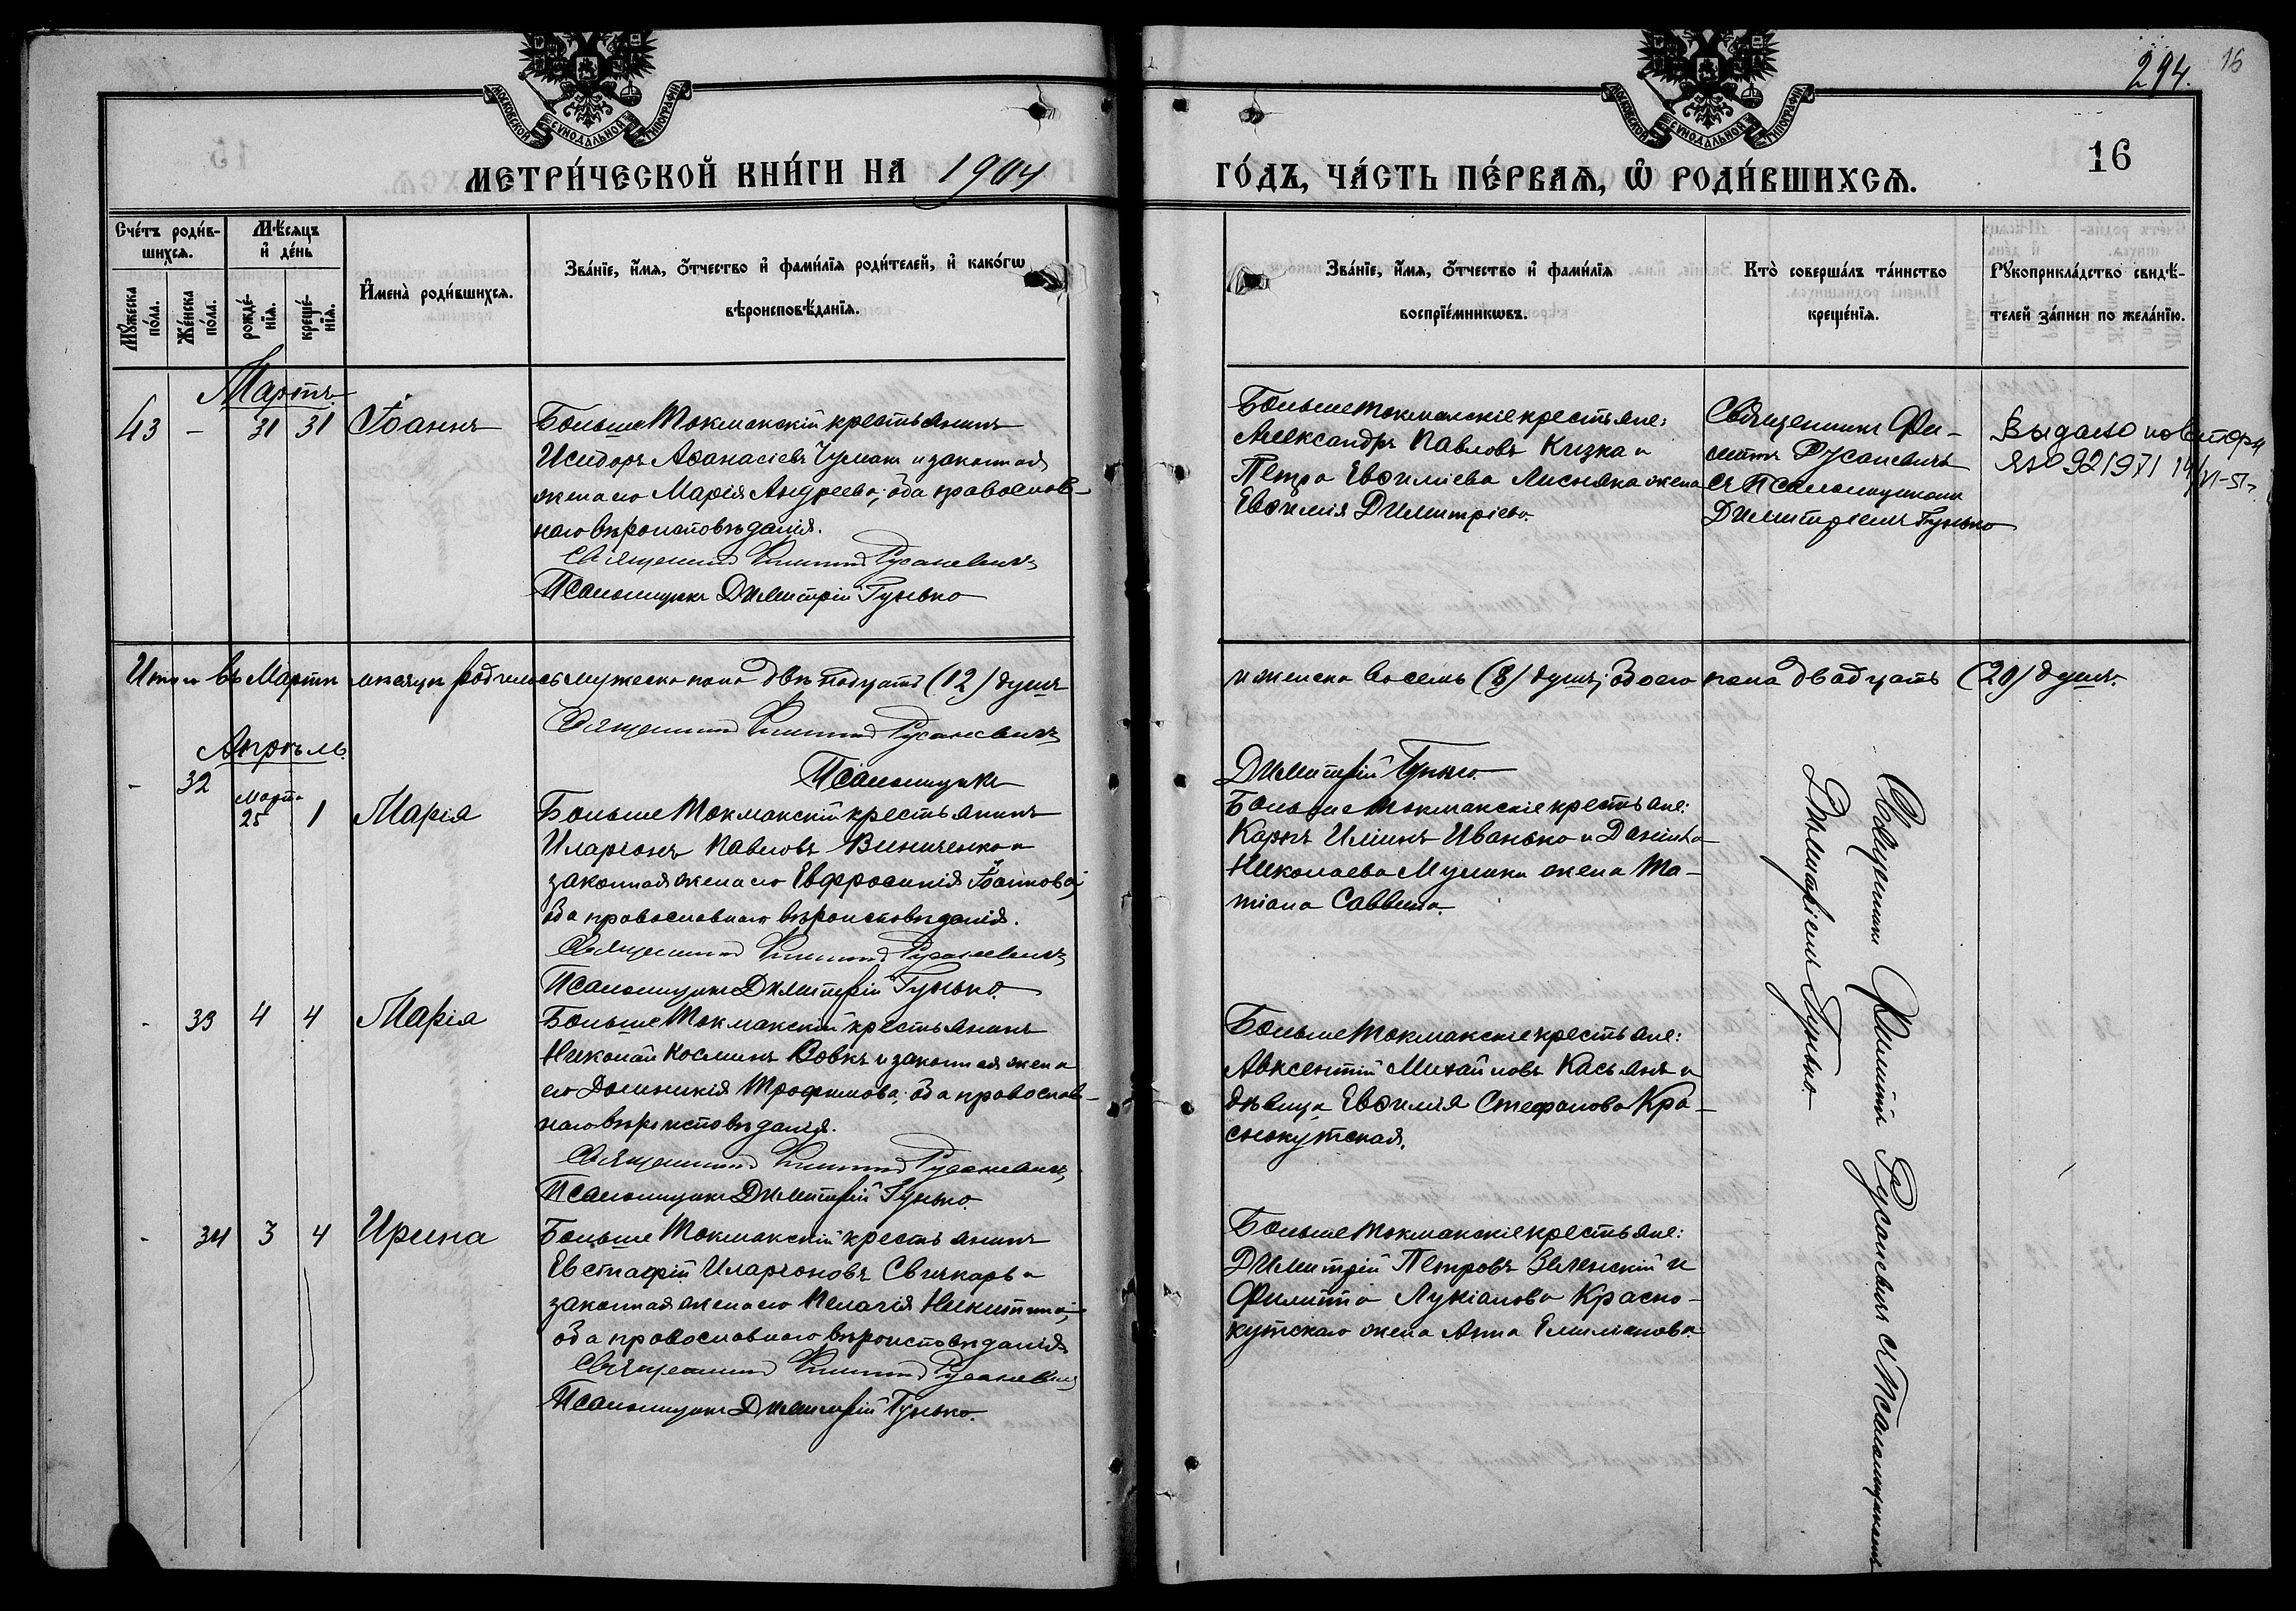 294.
16
МОСКОВСКОЙ СѴНОДАЛЬНОЙ ТИПОГРАФІИ
МОСКОВСКОЙ СѴНОДАЛЬНОЙ ТИПОГРАФІИ
16
МЕТРИ́ЧЕСКОЙ КНИ́ГИ НА 1904 ГО́ДЪ, ЧА́СТЬ ПЕ́РВАЯ, Ѡ РОДИ́ВШИХСЯ.
Сче́тъ роди́в-
шихся.
Мꙋ́жеска по́ла.
Же́нска по́ла.
Мѣ́сяцъ
и҆ де́нь
рожде́-
нїя.
креще́-
нїя.
И҆мена̀ роди́вшихся.
Зва́нїе, и҆́мя, ѻ҆́тчество и҆ фами́лїя роди́телей, и҆ како́гѡ
вѣроисповѣ́данїя.
Зва́нїе, и҆́мя, ѻ҆́тчество и҆ фами́лїя
воспрїе́мникѡвъ.
Кто̀ соверша́лъ та́инство
креще́нїя.
Рꙋкоприкла́дство свидѣ́-
телей за́писи по жела́нїю.
Мартъ
43 - 31 31 Іоаннъ
Больше Токмакскій крестьянинъ
Исидоръ Аѳанасіевъ Чумакъ и законная
жена его Марія Андреева; оба православ-
наго вѣроисповѣданія.
Священникъ Филиппъ Русаневичъ
Псаломщикъ Димитрій Гунько
Больше Токмакскіе крестьяне:
Александръ Павловъ Кизка и
Петра Евѳиміева Лисняка жена
Евѳимія Димитріева.
Священникъ Фи-
липпъ Русаневичъ
съ Псаломщикомъ
Димитріемъ Гунько
Выдано повторн
ЯЮ 921971 14/VI-51г.
Итого въ Мартѣ мѣсяцѣ родилось мужеска пола двѣнадцать (12) душъ
и женска восемь (8) душъ; обоего пола двадцать (20) душъ.
Священникъ Филиппъ Русаневичъ
Псаломщикъ Димитрій Гунько.
Апрѣль
- 32 Марта 25 1 Марія
Больше Токмакскій крестьянинъ
Иларіонъ Павловъ Виниченко и
законная жена его Евфросинія Іоаннова;
оба православнаго вѣроисповѣданія.
Священникъ Филиппъ Русаневичъ
Псаломщикъ Димитрій Гунько.
Больше Токмакскіе крестьяне:
Карпъ Илiинъ Иванько и Даніила
Николаева Мулики жена Та-
тіана Саввина.
Священникъ Филиппъ Русаневичъ съ Псаломщикомъ
Димитріемъ Гунько.
- 33 4 4 Марія
Больше Токмакскій крестьянинъ
Николай Косминъ Вовкъ и законная жена
его Домникія Трофимова; оба православ-
наго вѣроисповѣданія.
Священникъ Филиппъ Русаневичъ
Псаломщикъ Димитрій Гунько.
Больше Токмакскіе крестьяне:
Авксентій Михайловъ Касьянъ и
дѣвица Евѳимія Стефанова Кра-
снокутская.
- 34 3 4 Ирина
Больше Токмакскій крестьянинъ
Евстафій Иларіоновъ Свичкарь и
законная жена его Пелагія Никитина;
оба православнаго вѣроисповѣданія
Священникъ Филиппъ Русаневичъ
Псаломщикъ Димитрій Гунько.
Больше Токмакскіе крестьяне:
Димитрій Петровъ Зеленскій и
Филиппа Лукіанова Красно-
кутскаго жена Анна Емиліанова